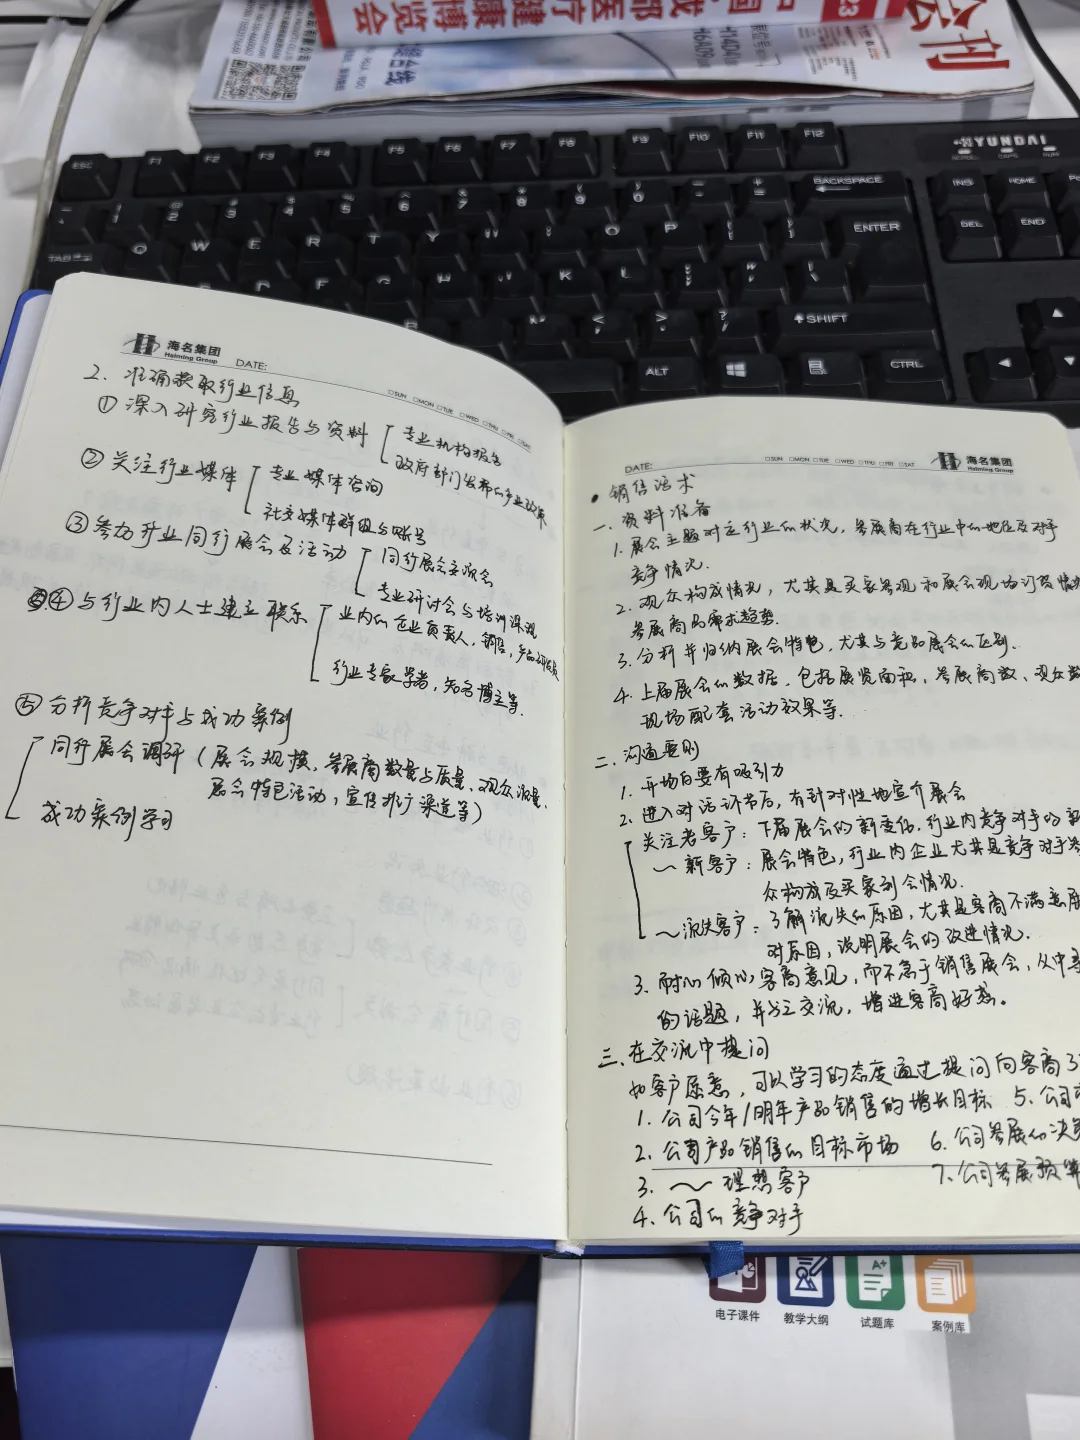 会刊
健康博览会
ESC F1 F2 F3 F4 F5 F6 F7 F8 F9 F10 F11 F12
HYUNDAI
BACKSPACE
INS HOME
ENTER
DEL END
TAB Q W E R T Y O P
K L
SHIFT
ALT CTRL
海名集团
Haiming Group
DATE:
□SUN □MON □TUE □WED □THU □FRI □SAT
2. 准确获取行业信息
① 深入研究行业报告与资料
专业机构报告
政府部门发布的产业政策
② 关注行业媒体
专业媒体咨询
社交媒体群组与账号
③ 参加行业同行展会及活动
同行展会交流会
专业研讨会与培训课程
④ 与行业内人士建立联系
业内的企业负责人,销售,产品研发员
行业专家学者,知名博主等.
⑤ 分析竞争对手与成功案例
同行展会调研(展会规模、参展商数量与质量、观众流量、
展会特色活动,宣传推广渠道等)
成功案例学习
DATE:
□SUN □MON □TUE □WED □THU □FRI □SAT
海名集团
Haiming Group
• 销售话术
一、资料准备
1. 展会主题对应行业的状况,参展商在行业中的地位及对手
竞争情况.
2. 观众构成情况,尤其是买家参观和展会现场订货情况
参展商的需求趋势.
3. 分析并归纳展会特色,尤其与竞品展会的区别.
4. 上届展会的数据,包括展览面积、参展商数、观众数
现场配套活动效果等.
二、沟通要则
1. 开场白要有吸引力
2. 进入对话环节后,有针对性地宣介展会
关注老客户:下届展会的新变化,行业内竞争对手的新
~ 新客户:展会特色,行业内企业尤其是竞争对手参
众构成及买家到会情况.
~流失客户:了解流失的原因,尤其是客商不满意展
对原因,说明展会的改进情况.
3. 耐心倾听客商意见,而不急于销售展会,从中寻
的话题,并与之交流,增进客商好感。
三、在交流中提问
如客户愿意,可以学习的态度通过提问向客商了
1. 公司今年/明年产品销售的增长目标 5、公司
2. 公司产品销售的目标市场 6. 公司参展的决策
3. ~ 理想客户 7、公司参展预算
4. 公司的竞争对手
电子课件 教学大纲 试题库 案例库